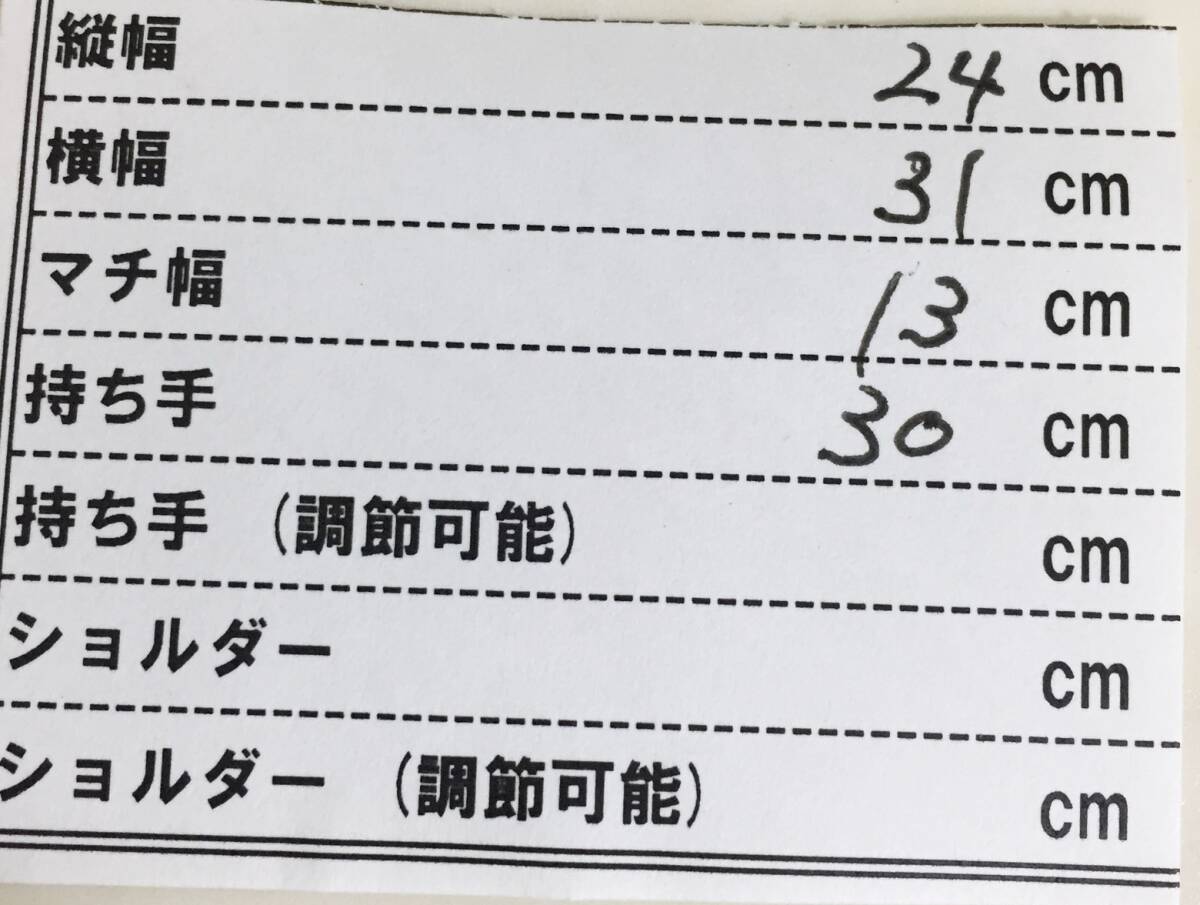 縦幅 24 cm
横幅 31 cm
マチ幅 13 cm
持ち手 30 cm
持ち手 (調節可能) cm
ショルダー cm
ショルダー (調節可能) cm